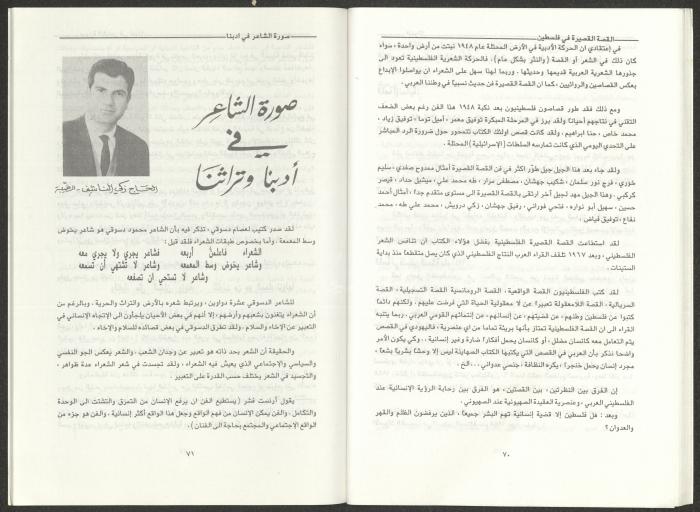 القصة القصيرة في فلسطين
في إعتقادي ان الحركة الأدبية في الأرض المحتلة عام ١٩٤٨ نبتت من أرض واحدة ، سواء
كان ذلك في الشعر أو القصة (والنثر بشكل عام) ، فالحركة الشعرية الفلسطينية تعود الى
جذورها الشعرية العربية قديمها وحديثها . وربما لهذا سهل على الشعراء ان يواصلوا الإبداع
بعكس القصاصين والروائيين ، كما ان القصة القصيرة فن حديث نسبيا في وطننا العربي .
ومع ذلك فقد طور قصاصون فلسطينيون بعد نكبة ١٩٤٨ هذا الفن رغم بعض الضعف
التقني في نتاجهم أحيانا ولقد برز في المرحلة المبكرة توفيق معمر ، أميل توما ، توفيق زياد ،
محمد خاص ، حنا ابراهيم . ولقد كانت قصص اولئك الكتاب تتمحور حول ضرورة الرد المباشر
على التحدي اليومي الذي كانت تمارسه السلطات (الإسرائيلية) المحتلة .
ولقد جاء بعد هذا الجيل جيل طوّر اكثر في فن القصة القصيرة أمثال ممدوح صفدي ، سليم
خوري ، فرج نور سلمان ، شكيب جهشان ، مصطفى مرار ، طه محمد علي ، ميشيل حداد ، قيصر
كركبي . وهذا الجيل مهد لجيل آخر ارتقى بالقصة القصيرة الى مستوى متقدم جدا ، أمثال أحمد
حسين ، سهيل أبو نواره ، فتحي فوراني ، رفيق جهشان ، زكي درويش ، محمد علي طه ، محمد
نفاع ، توفيق فياض .
لقد استطاعت القصة القصيرة الفلسطينية بفضل هؤلاء الكتاب ان تنافس الشعر
الفلسطيني ، وبعد ١٩٦٧ تلقف القراء العرب النتاج الفلسطيني الذي كان يصل متقطعا منذ بداية
الستينات .
لقد كتب الفلسطينيون القصة الواقعية ، القصة الرومانسية القصة التسجيلية ، القصة
السريالية ، القصة اللامعقولة تعبيرا عن لا معقولية الحياة التي فرضت عليهم . ولكنهم دائما
كتبوا عن فلسطين وطنهم ، عن قضيتهم ، عن إنسانهم ، عن إنتمائهم القومي العربي . ربما ينتبه
القراء الى ان القصة الفلسطينية تمتاز بأنها بريئة تماما من اي عنصرية ، فاليهودي في القصص
يتم التعامل معه كانسان مضلل ، أو كانسان يحمل أفكارا ضارة وغير إنسانية .. وكي يكون الأمر
واضحا نذكر بأن العربي في القصص التي يكتبها الكتاب الصهاينة ليس إلا وحشا بشريا بشعا ،
مجرد إنسان يحمل خنجرا ، يكره النظافة ، جنسي عدواني ... الخ .
إن الفرق بين النظرتين ، بين القصتين ، هو الفرق بين رحابة الرؤية الإنسانية عند
الفلسطيني العربي ، وعنصرية العقيدة الصهيونية عند الصهيوني .
وبعد : هل فلسطين إلا قضية إنسانية تهم البشر جميعا ، الذين يرفضون الظلم والقهر
والعدوان ؟
٧٠
صورة الشاعر في ادبنا
صورة الشاعر
في
أدبنا وتراثنا
لقد صدر كتيب لعصام دسوقي ، تذكر فيه بأن الشاعر محمود دسوقي هو شاعر يخوض
وسط المعمعة . وأما بخصوص طبقات الشعراء فلقد قيل :
الشعراء فاعلمن أربعه فشاعر يجري ولا يجري معه
وشاعر يخوض وسط المعمعه وشاعر لا تشتهي أن تسمعه
وشاعر لا تستحي ان تصفعه
للشاعر الدسوقي عشرة دواوين ، ويرتبط شعره بالأرض والتراث والحرية . وبالرغم من
أن الشعراء يتغنون بشعبهم وأرضهم ، إلا أنهم في بعض الأحيان يلجأون الى الإتجاه الإنساني في
التعبير عن الإخاء والسلام . ولقد تطرق الدسوقي في بعض قصائده للسلام والإخاء .
والحقيقة أن الشعر بحد ذاته هو تعبير عن وجدان الشعب . والشعر يعكس الجو النفسي
والسياسي والإجتماعي الذي يعيش فيه الشعراء . ولقد تجسدت في شعر الشعراء عدة ظواهر ،
والتجسيد في الشعر يختلف حسب القدرة على التعبير .
يقول أرنست فشر (يستطيع الفن ان يرفع الإنسان من التمزق والتشتت الى الوحدة
والتكامل ، والفن يمكن الإنسان من فهم الواقع وجعل هذا الواقع أكثر إنسانية ، والفن هو جزء من
الواقع الإجتماعي والمجتمع بحاجة الى الفنان) .
٧١